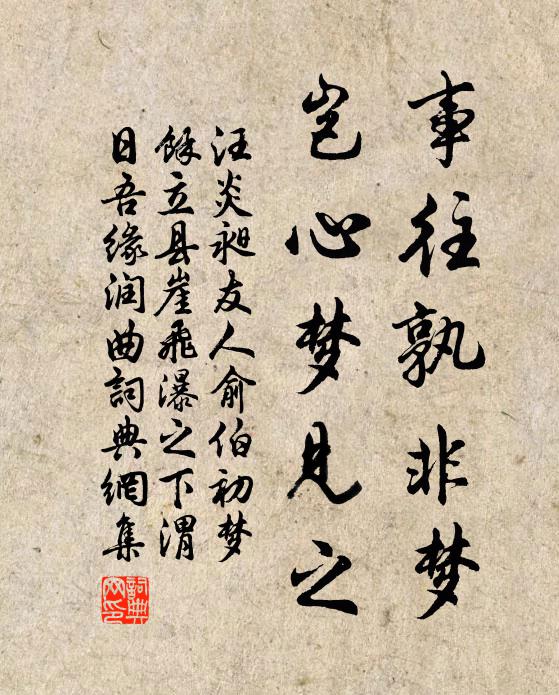 事往孰非梦
岂心梦见之
汪炎昶友人俞伯初梦
馀立县崖飞瀑之下渭
日吾缘润曲詞典網集
詞典网印